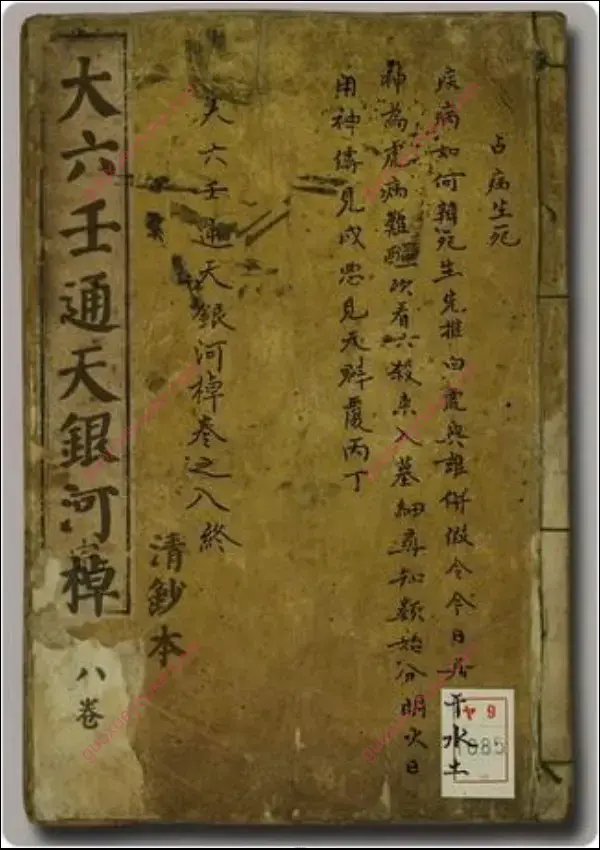 占病生死
疾病如何辨死生先推白虎與誰併假令今日干水土
神為虎病難醒次看六殺来入墓細尋知類始分明火日
用神見忌見覆丙丁
大六壬通天銀河棹卷之八終
清鈔本
大六壬通天銀河棹
八卷
ヤ9
1085